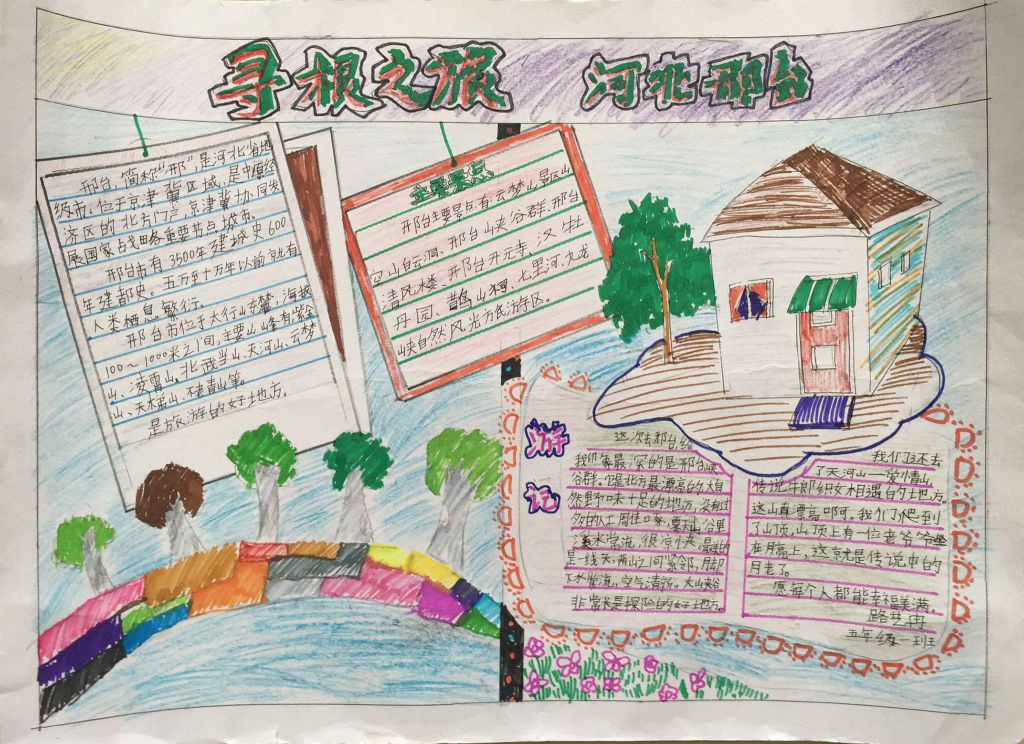 寻根之旅 河北邢台
邢台,简称"邢",是河北省地
级市、位于京津冀区域,居中原经
济区的北方门户,京津冀协同发
展国家战略重要节点城市。
邢台市有3500年建城史600
年建都史。五万至十万年以前就有
人类栖息繁衍。
邢台市位于太行山东麓,海拔
100~1000米之间,主要山峰有紫金
山、凌霄山、北武当山、天河山、云梦
山、天梯山、不老青山等。
是旅游的好地方。
主要景点
邢台主要景点有:云梦山景区山
空山白云洞、邢台峡谷群、邢台
清风楼、邢台开元寺、汉牡
丹园、鹊山祠、七里河、九龙
峡自然风光旅游区。
游记
这次去邢台给
我印象最深的是邢台峡
谷群。它是北方最漂亮的大自
然野味十足的地方,没有过
多的人工
谷里
溪水常流,很凉爽、最
是一线天,两山之间紧邻,脚
下水常流,空气清新。大峡谷
非常长是探险的好地方。
我们还去
了天河山—爱情山,
传说牛郎织女相遇的地方,
这山真漂亮啊。我们爬到
了山顶,山顶上有一位老爷爷坐
在月亮上,这就是传说中的
月老了。
愿每个人都能幸福美满。
路艺冉
五年级一班